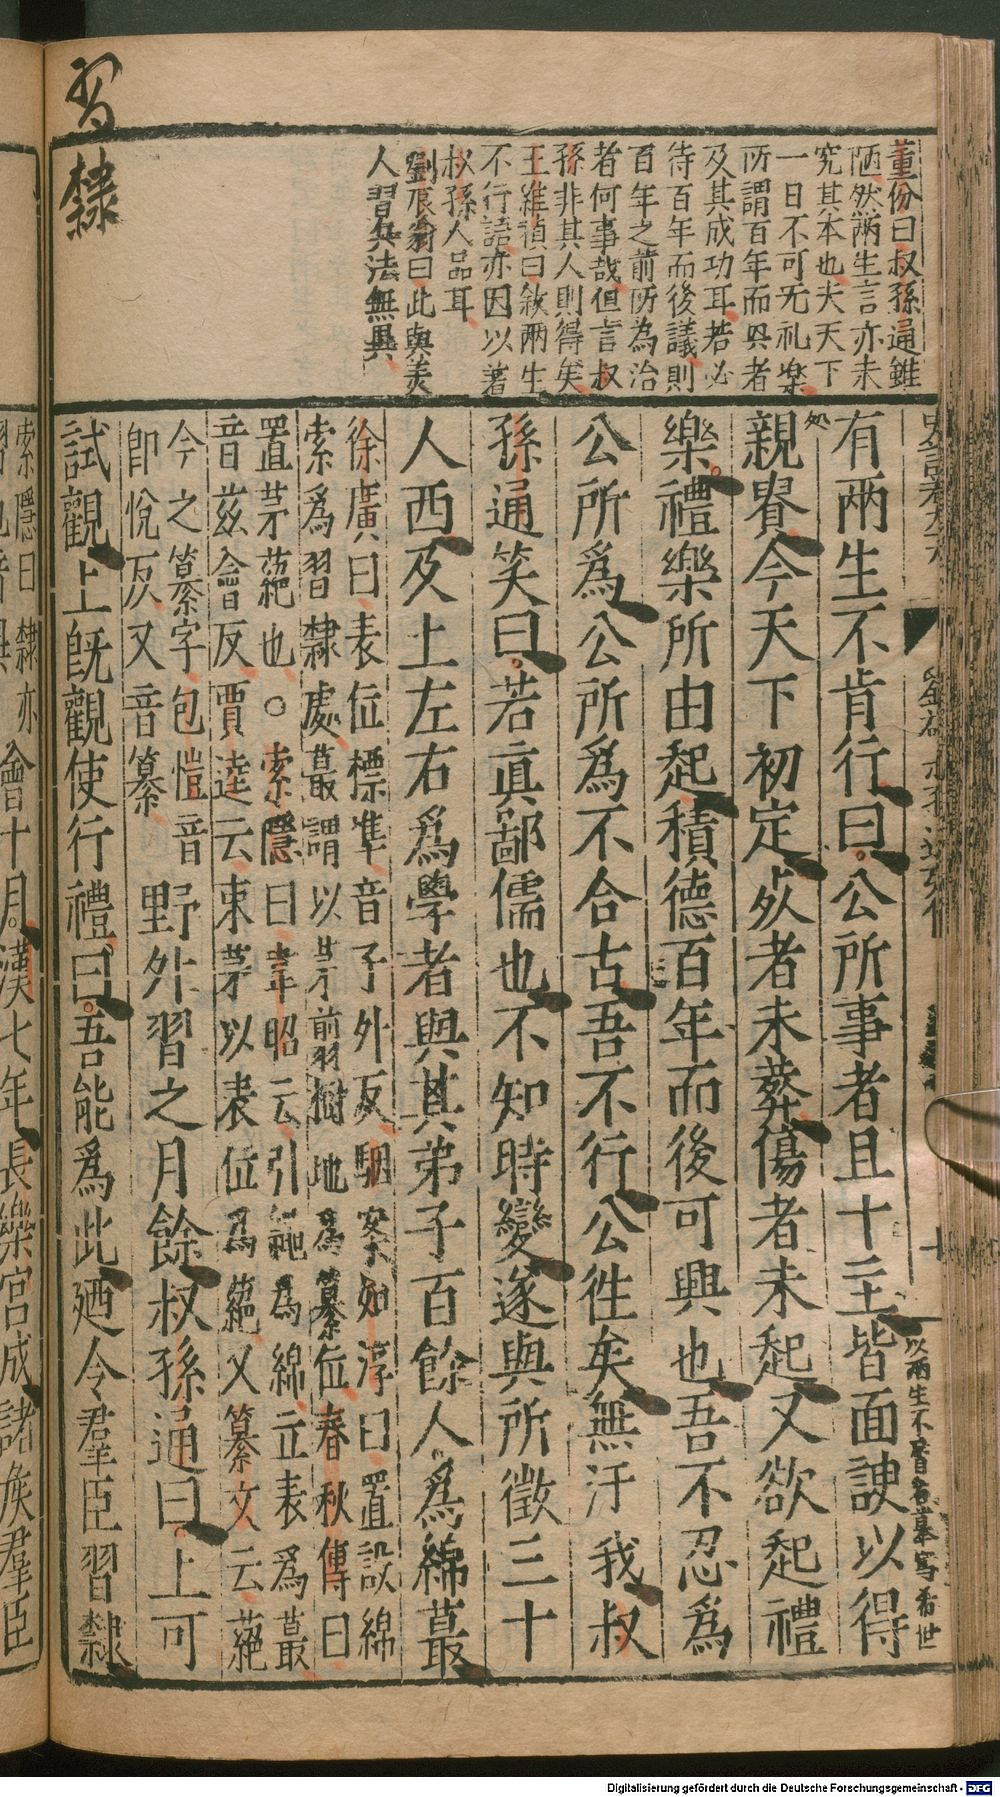 董份曰叔孫通雖
陋然兩生言亦未
究其本也夫天下
一日不可无礼樂
所謂百年而興者
及其成功耳若必
待百年而後議則
百年之前所為治
者何事哉但言叔
孫非其人則得矣
王維楨曰敘兩生
不行語亦因以著
叔孫人品耳
劉辰翁曰此與美
人習兵法無異
習隸
有兩生不肯行曰公所事者且十主皆面諛以得
以兩生不肯名摹寫希世
親貴今天下初定死者未葬傷者未起又欲起禮
処
樂禮樂所由起積德百年而後可興也吾不忍爲
公所爲公所爲不合古吾不行公徃矣無汙我叔
孫通笑曰若真鄙儒也不知時變遂與所徵三十
人西及上左右爲學者與其弟子百餘人爲綿蕞
徐廣曰表位標準音子外反駰案如淳曰置設綿
索爲習隸處蕞謂以茅剪樹地爲纂位春秋傳曰
置茅蕝也○索隱曰韋昭云引繩爲綿立表爲蕞
音茲會反賈逵云束茅以表位爲蕝又纂文云蕝
今之纂字包愷音
即悅反又音纂
野外習之月餘叔孫通曰上可
試觀上旣觀使行禮曰吾能爲此廼令羣臣習隸
索隱曰隸亦
習也音異
會十月漢七年長樂宮成諸矦羣臣
Digitalisierung gefördert durch die Deutsche Forschungsgemeinschaft - DFG